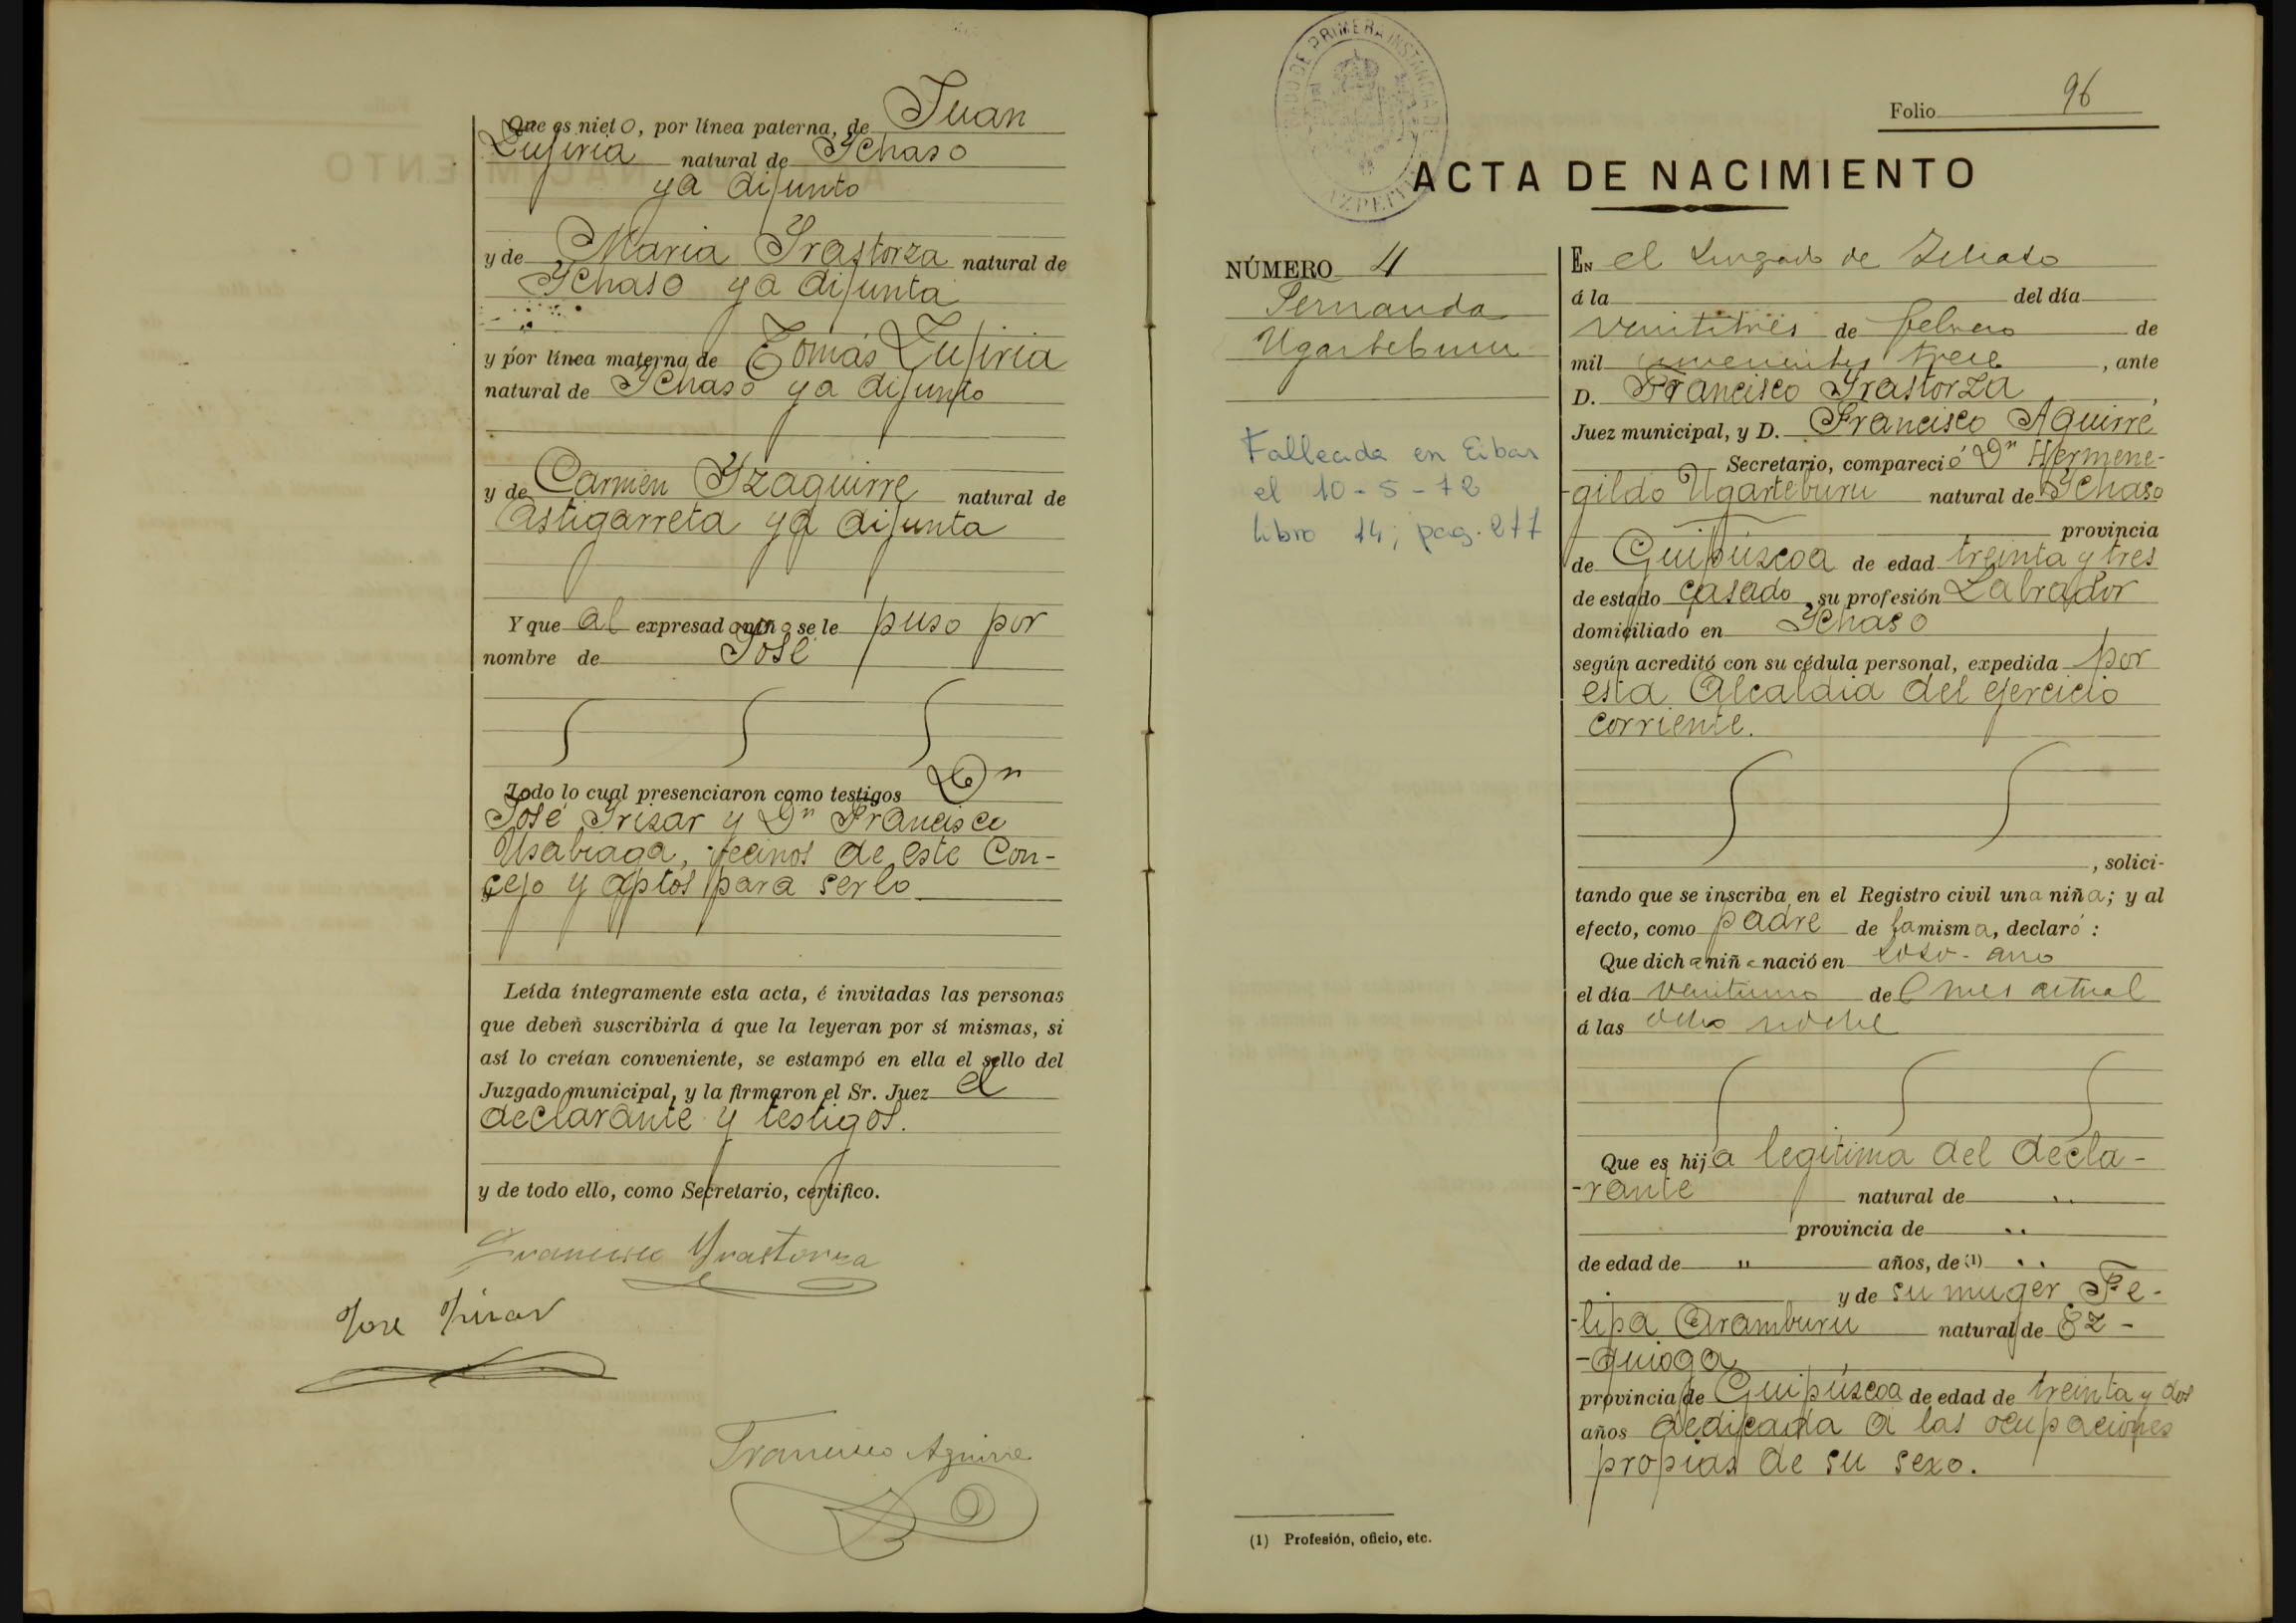 Que es nieto, por línea paterna, de Juan
Zufiria natural de Ychaso
ya difunto
y de Maria Yrastorza natural de
Ychaso ya difunta
y por línea materna de Tomás Zufiria
natural de Ychaso ya difunto
y de Carmen Yzaguirre natural de
Astigarreta ya difunta
Y que al expresado niño se le puso por
nombre de José
Todo lo cual presenciaron como testigos Dn
José Yrizar y Dn Francisco
Usabiaga, vecinos de este Con-
cejo y aptos para serlo
Leída íntegramente esta acta, é invitadas las personas
que deben suscribirla á que la leyeran por sí mismas, si
así lo creían conveniente, se estampó en ella el sello del
Juzgado municipal, y la firmaron el Sr. Juez el
declarante y testigos.
y de todo ello, como Secretario, certifico.
Francisco Yrastorza
José Yrizar
Francisco Aguirre
JUZGADO DE PRIMERA INSTANCIA DE
AZPEITIA
Folio 96
ACTA DE NACIMIENTO
NÚMERO 4
Fernanda
Ugarteburu
Fallecida en Eibar
el 10-5-72
libro 14, pag. 277
EN el Juzgado de Ychaso
á la del día
veintitrés de febrero de
mil novecientos trece, ante
D. Francisco Yrastorza,
Juez municipal, y D. Francisco Aguirre
Secretario, compareció Dn Hermene-
-gildo Ugarteburu natural de Ychaso
provincia
de Guipúzcoa de edad treinta y tres
de estado casado, su profesión Labrador
domiciliado en Ychaso
según acreditó con su cédula personal, expedida por
esta Alcaldia del ejercicio
corriente.
, solici-
tando que se inscriba en el Registro civil una niña; y al
efecto, como padre de la misma, declaró:
Que dicha niña nació en
el día veintiuno del mes actual
á las ocho noche
Que es hija legitima del decla-
-rante natural de "
provincia de "
de edad de " años, de (1) "
y de su muger Fe-
-lipa Aramburu natural de Ez-
-quioga
provincia de Guipúzcoa de edad de treinta y dos
años dedicada a las ocupaciones
propias de su sexo.
(1) Profesión, oficio, etc.